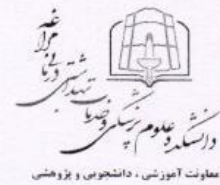 دانشکده علوم پزشکی و خدمات
بهداشتی درمانی مراغه
معاونت آموزشی ، دانشجویی و پژوهشی